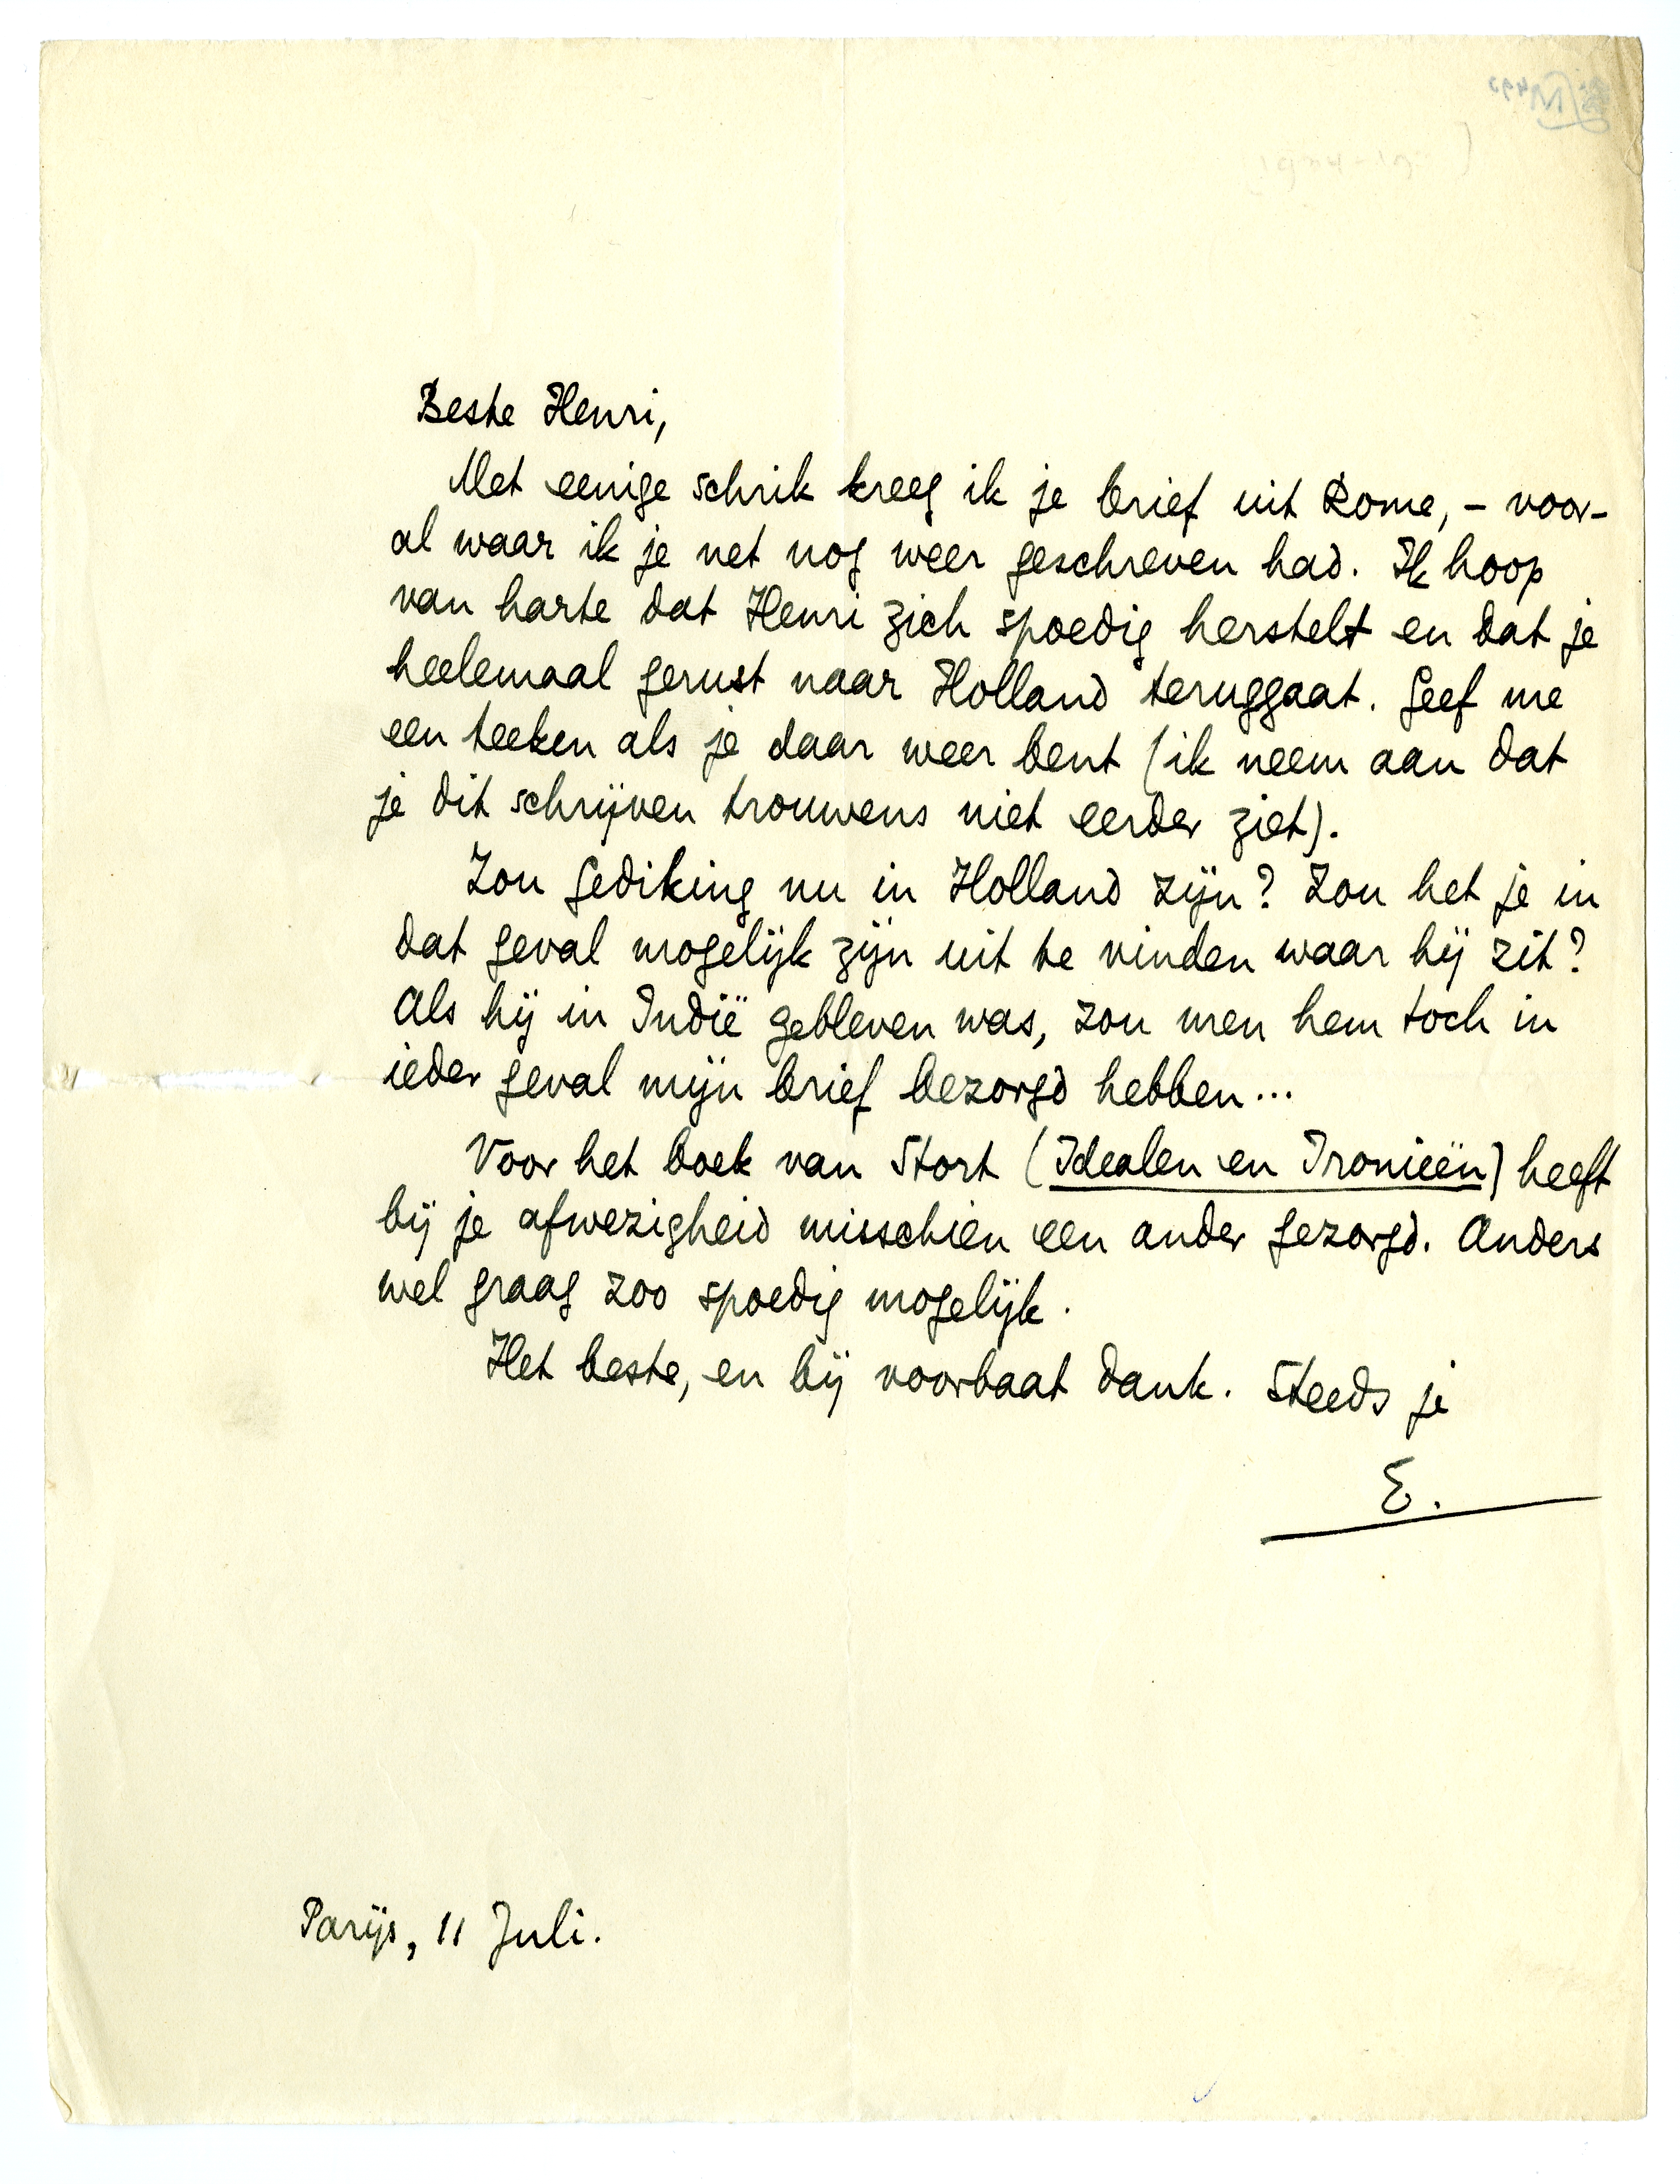 Beste Henri,
Met eenige schrik kreeg ik je brief uit Rome, – voor-
al waar ik je net nog weer geschreven had. Ik hoop
van harte dat Henri zich spoedig herstelt en dat je
heelemaal gerust naar Holland teruggaat. Geef me
een teeken als je daar weer bent (ik neem aan dat
je dit schrijven trouwens niet eerder ziet).
Zou Gediking nu in Holland zijn? Zou het je in
dat geval mogelijk zijn uit te vinden waar hij zit?
Als hij in Indië gebleven was, zou men hem toch in
ieder geval mijn brief bezorgd hebben...
Voor het boek van Stort (Idealen en Ironieën) heeft
bij je afwezigheid misschien een ander gezorgd. Anders
wel graag zoo spoedig mogelijk.
Het beste, en bij voorbaat dank. Steeds je
E.
Parijs, 11 Juli.